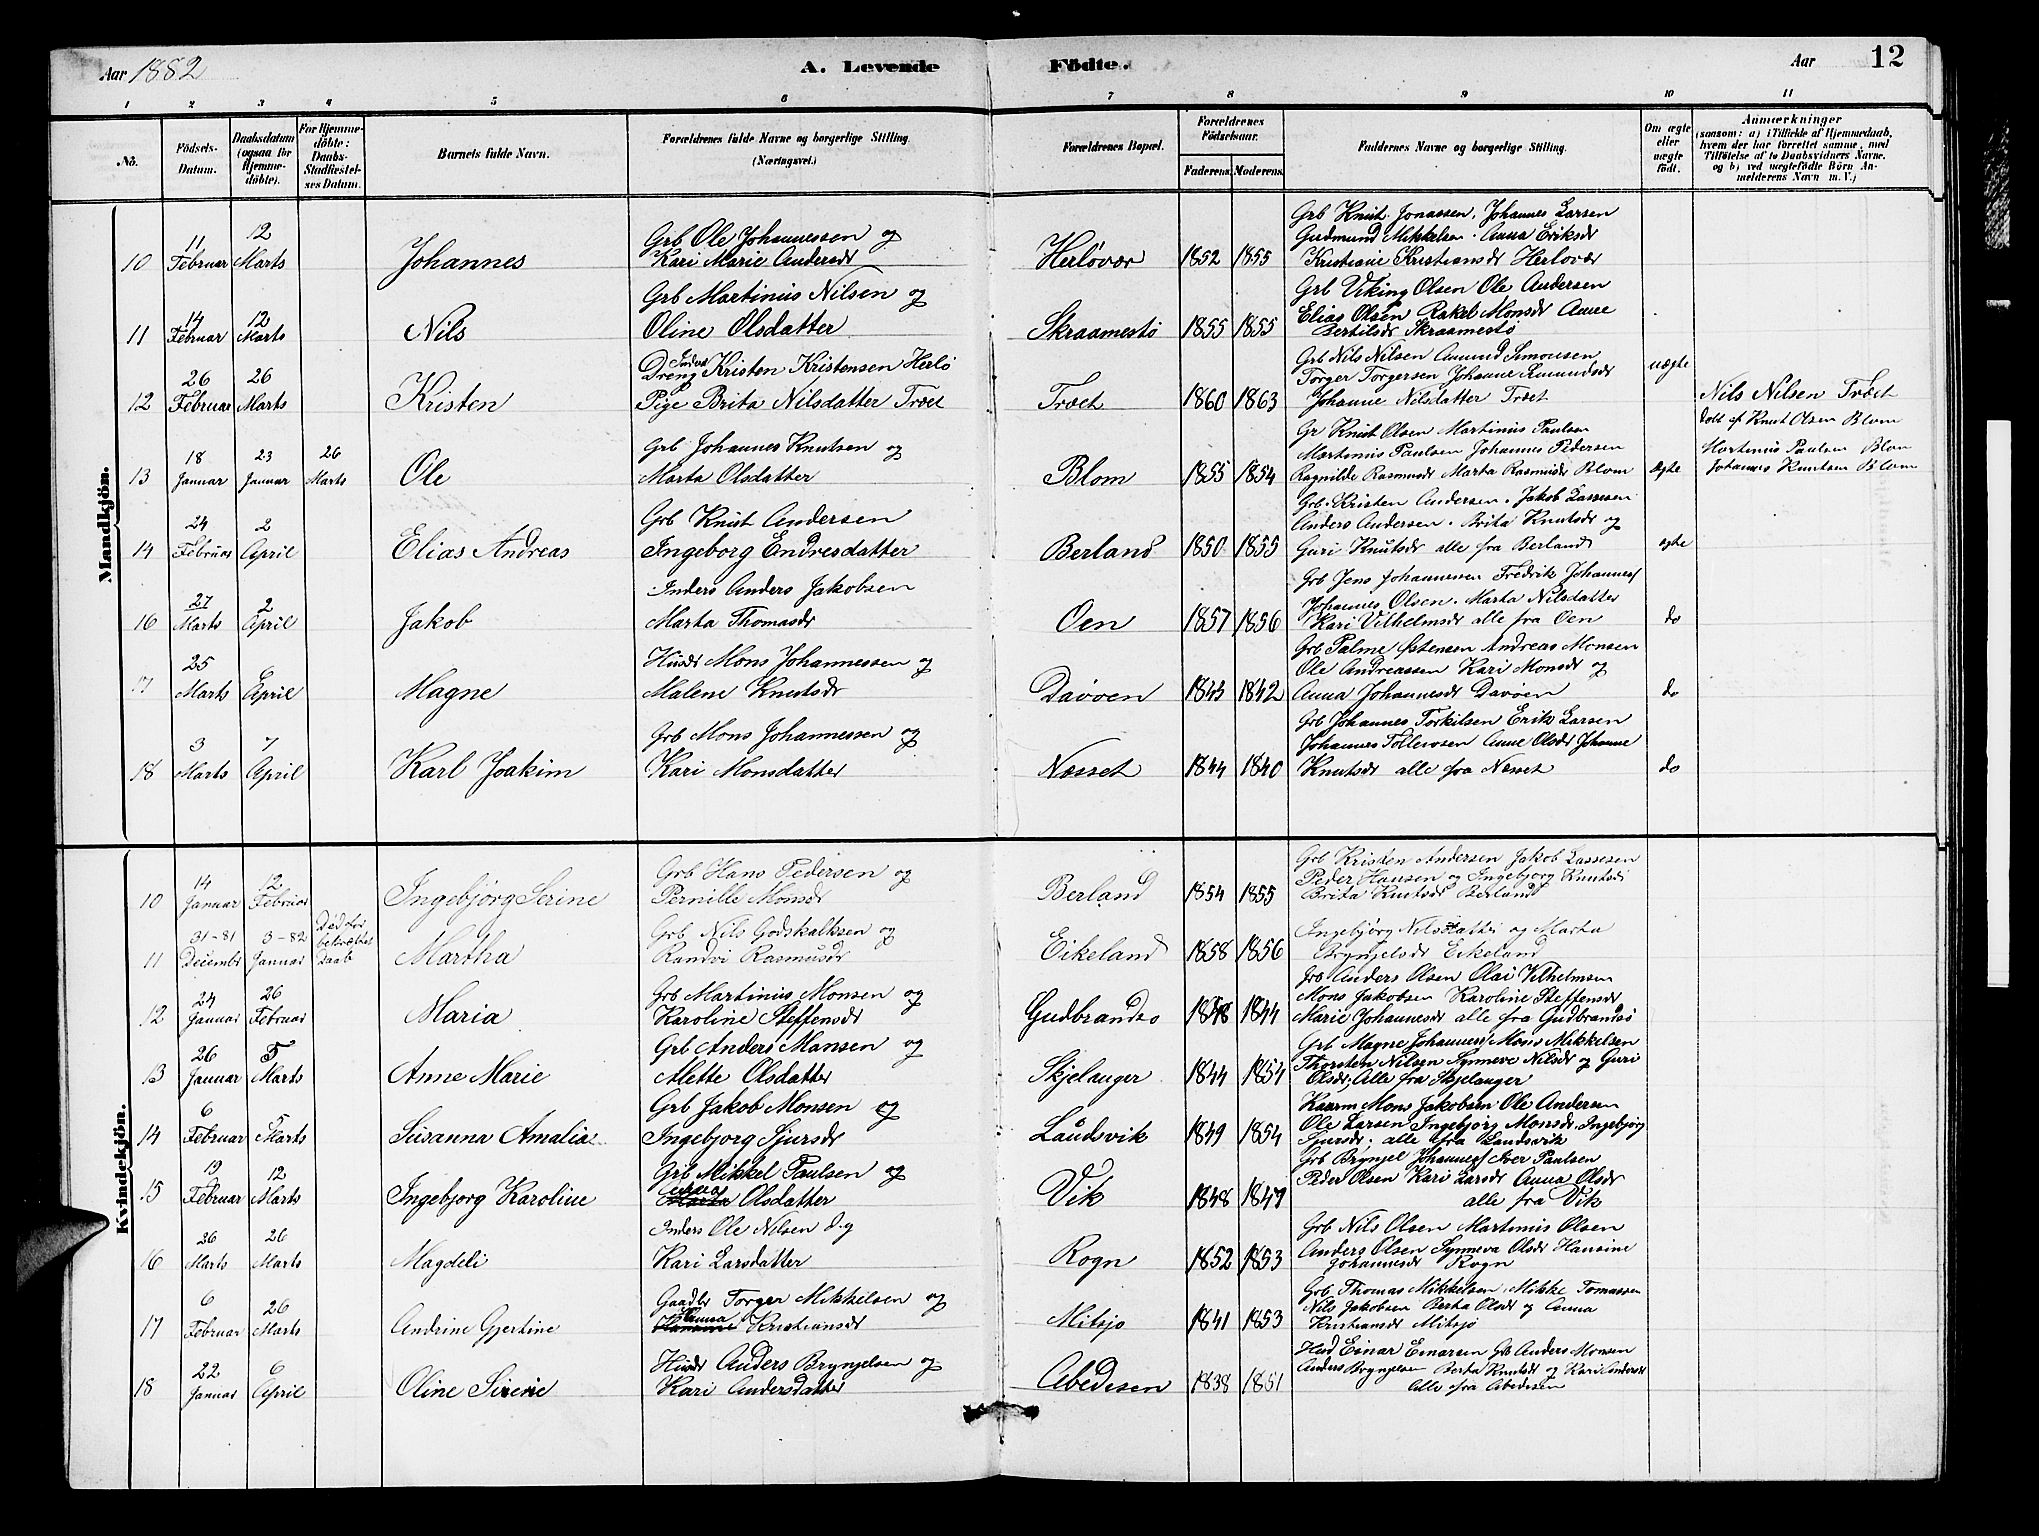 Aar 1882
A. Levende Födte.
Aar 12
1 2 3 4 5 6 7 8 9 10 11
No.
Födsels-Datum.
Daabsdatum (ogsaa for Hjemme-döbte).
For Hjemme-döbte: Daabs-Stadfæstel-ses Datum.
Barnets fulde Navn.
Forældrenes fulde Navne og borgerlige Stilling. (Næringsvei.)
Forældrenes Bopæl.
Forældrenes Födselsaar.
Faderens. Moderens.
Faddernes Navne og borgerlige Stilling.
Om ægte eller uægte født.
Anmærkninger
(saasom: a) i Tilfælde af Hjemmedaab, hvem der har forrettet samme, med Tilföielse af to Daabsvidners Navne. og b) ved uægtefödte Börn An-melderens Navn m. V.)
Mandkjön.
10 11 Februar 12 Marts Johannes Grb Ole Johannessen og Kari Marie Andersdr Herlövær 1852 1855 Grb Knut Jonassen, Johannes Larsen Gudmund Mikkelsen. Anna Eriksdr Kristiane Kristiansdr Herlovær
11 14 Februar 12 Marts Nils Grb Martinus Nilsen og Oline Olsdatter Skraamestö 1855 1855 Grb Viking Olsen Ole Andersen Elias Olsen Rakel Monsdr Anne Bertilsdr Skraamestö
12 26 Februar 26 Marts Kristen Inderst Dreng Kristen Kristensen Herlö Pige Brita Nilsdatter Træet Træet 1860 1863 Grb Nils Nilsen Amund Simonsen Torger Torgersen Johanne Rasmusdr Johanne Nilsdatter Træet uægte Nils Nilsen Træet
13 18 Januar 23 Januar 26 Marts Ole Grb Johannes Knutsen og Marta Olsdatter Blom 1855 1854 Gr Knut Olsen Martinus Paulsen Martinus Paulsen Johannes Pedersen Ragnilde Rasmusdr Marta Rasmusdr Blom ægte Døbt af Knut Olsen Blom Martinus Paulsen Blom Johannes Knutsen Blom
14 24 Februar 2 April Elias Andreas Grb Knut Andersen Ingeborg Endresdatter Berland 1850 1855 Grb. Kristen Andersen. Jakob Lassesen Anders Andersen. Brita Knutsdr og Guri Knutsdr alle fra Berland ægte
16 27 Marts 2 April Jakob Inders Anders Jakobsen Marta Thomasdr Oen 1857 1856 Grb Jens Johannessen Fredrik Johannes/ Johannes Olsen. Marta Nilsdatter Kari Vilhelmsdr alle fra Oen do
17 25 Marts 6 April Magne Husdr Mons Johannessen og Malene Knutsdr Davöen 1843 1842 Grb Palme Østensen Andreas Monsen Ole Andreassen Kari Monsdr og Anna Johannesdr Davöen do
18 3 Marts 7 April Karl Joakim Grb Mons Johannessen og Kari Monsdatter Næsset 1844 1840 Grb Johannes Torkilsen Erik Larsen Johannes Tollevsen Anne Olsdr Johanne Knutsdr alle fra Næsset do
Kvindekjön.
10 14 Januar 12 Februar Ingebjörg Serine Grb Hans Pedersen og Pernille Monsdr Berland 1854 1855 Grb Kristen Andersen Jakob Lassesen Peder Hansen og Ingebjörg Knutsdr Brita Knutsdr Berland
11 31-81 December 3-82 Januar Död før bekræftet daab Martha Grb Nils Godskalksen og Randvi Rasmusdr Eikeland 1858 1856 Ingebjörg Nilsdatter og Marta Brynjelsdr Eikeland
12 24 Januar 26 Februar Maria Grb Martinus Monsen og Karoline Steffensdr Gudbrandsö 1848 1844 Grb Anders Olsen Olai Vilhelmsen Mons Jakobsen Karoline Steffensdr Marie Johannesdr alle fra Gudbrandsö
13 26 Januar 5 Marts Anne Marie Grb Anders Mansen og Alette Olsdatter Skjelanger 1844 1854 Grb Magne Johannes/ Mons Mikkelsen Thorsten Nilsen Synneve Nilsdr og Guri Olsdr, Alle fra Skjelanger
14 6 Februar 5 Marts Susanna Amalia Grb Jakob Monsen og Ingebjorg Sjursdr Landsvik 1849 1854 Kaarm Mons Jakobsen Ole Andersen Ole Larsen Ingebjörg Monsdr. Ingebjörg Sjursdr. alle fra Landsvik
15 19 Februar 12 Marts Ingebjorg Karoline Grb Mikkel Paulsen og Olsdatter Vik 1848 1847 Grb Brynjel Johannes/ Iver Paulsen Peder Olsen Kari Larsdr Anna Olsdr alle fra Vik
16 26 Marts 26 Marts Magdeli Inders Ole Nilsen og Kari Larsdatter Rogn 1852 1853 Grb Nils Olsen Martinus Olsen Anders Olsen Synneva Olsdr Hansine Johannesdr Rogn
17 6 Februar 26 Marts Andrine Gjertine Gaardbr Torger Mikkelsen og Hanna Kristiansdr Mitsjo 1841 1853 Grb Thomas Mikkelsen Mikke Tomassen Nils Jakobsen Berta Olsdr og Anna Kristiansdr Mitsjö
18 22 Januar 6 April Oline Sirene Husdr Anders Brynjelsen og Kari Andersdatter Abedesen 1838 1851 Husd Einar Einarsen Grb Anders Monsen Anders Brynjelsen Berta Knutsdr og Kari Andersdr Alle fra Abedesen